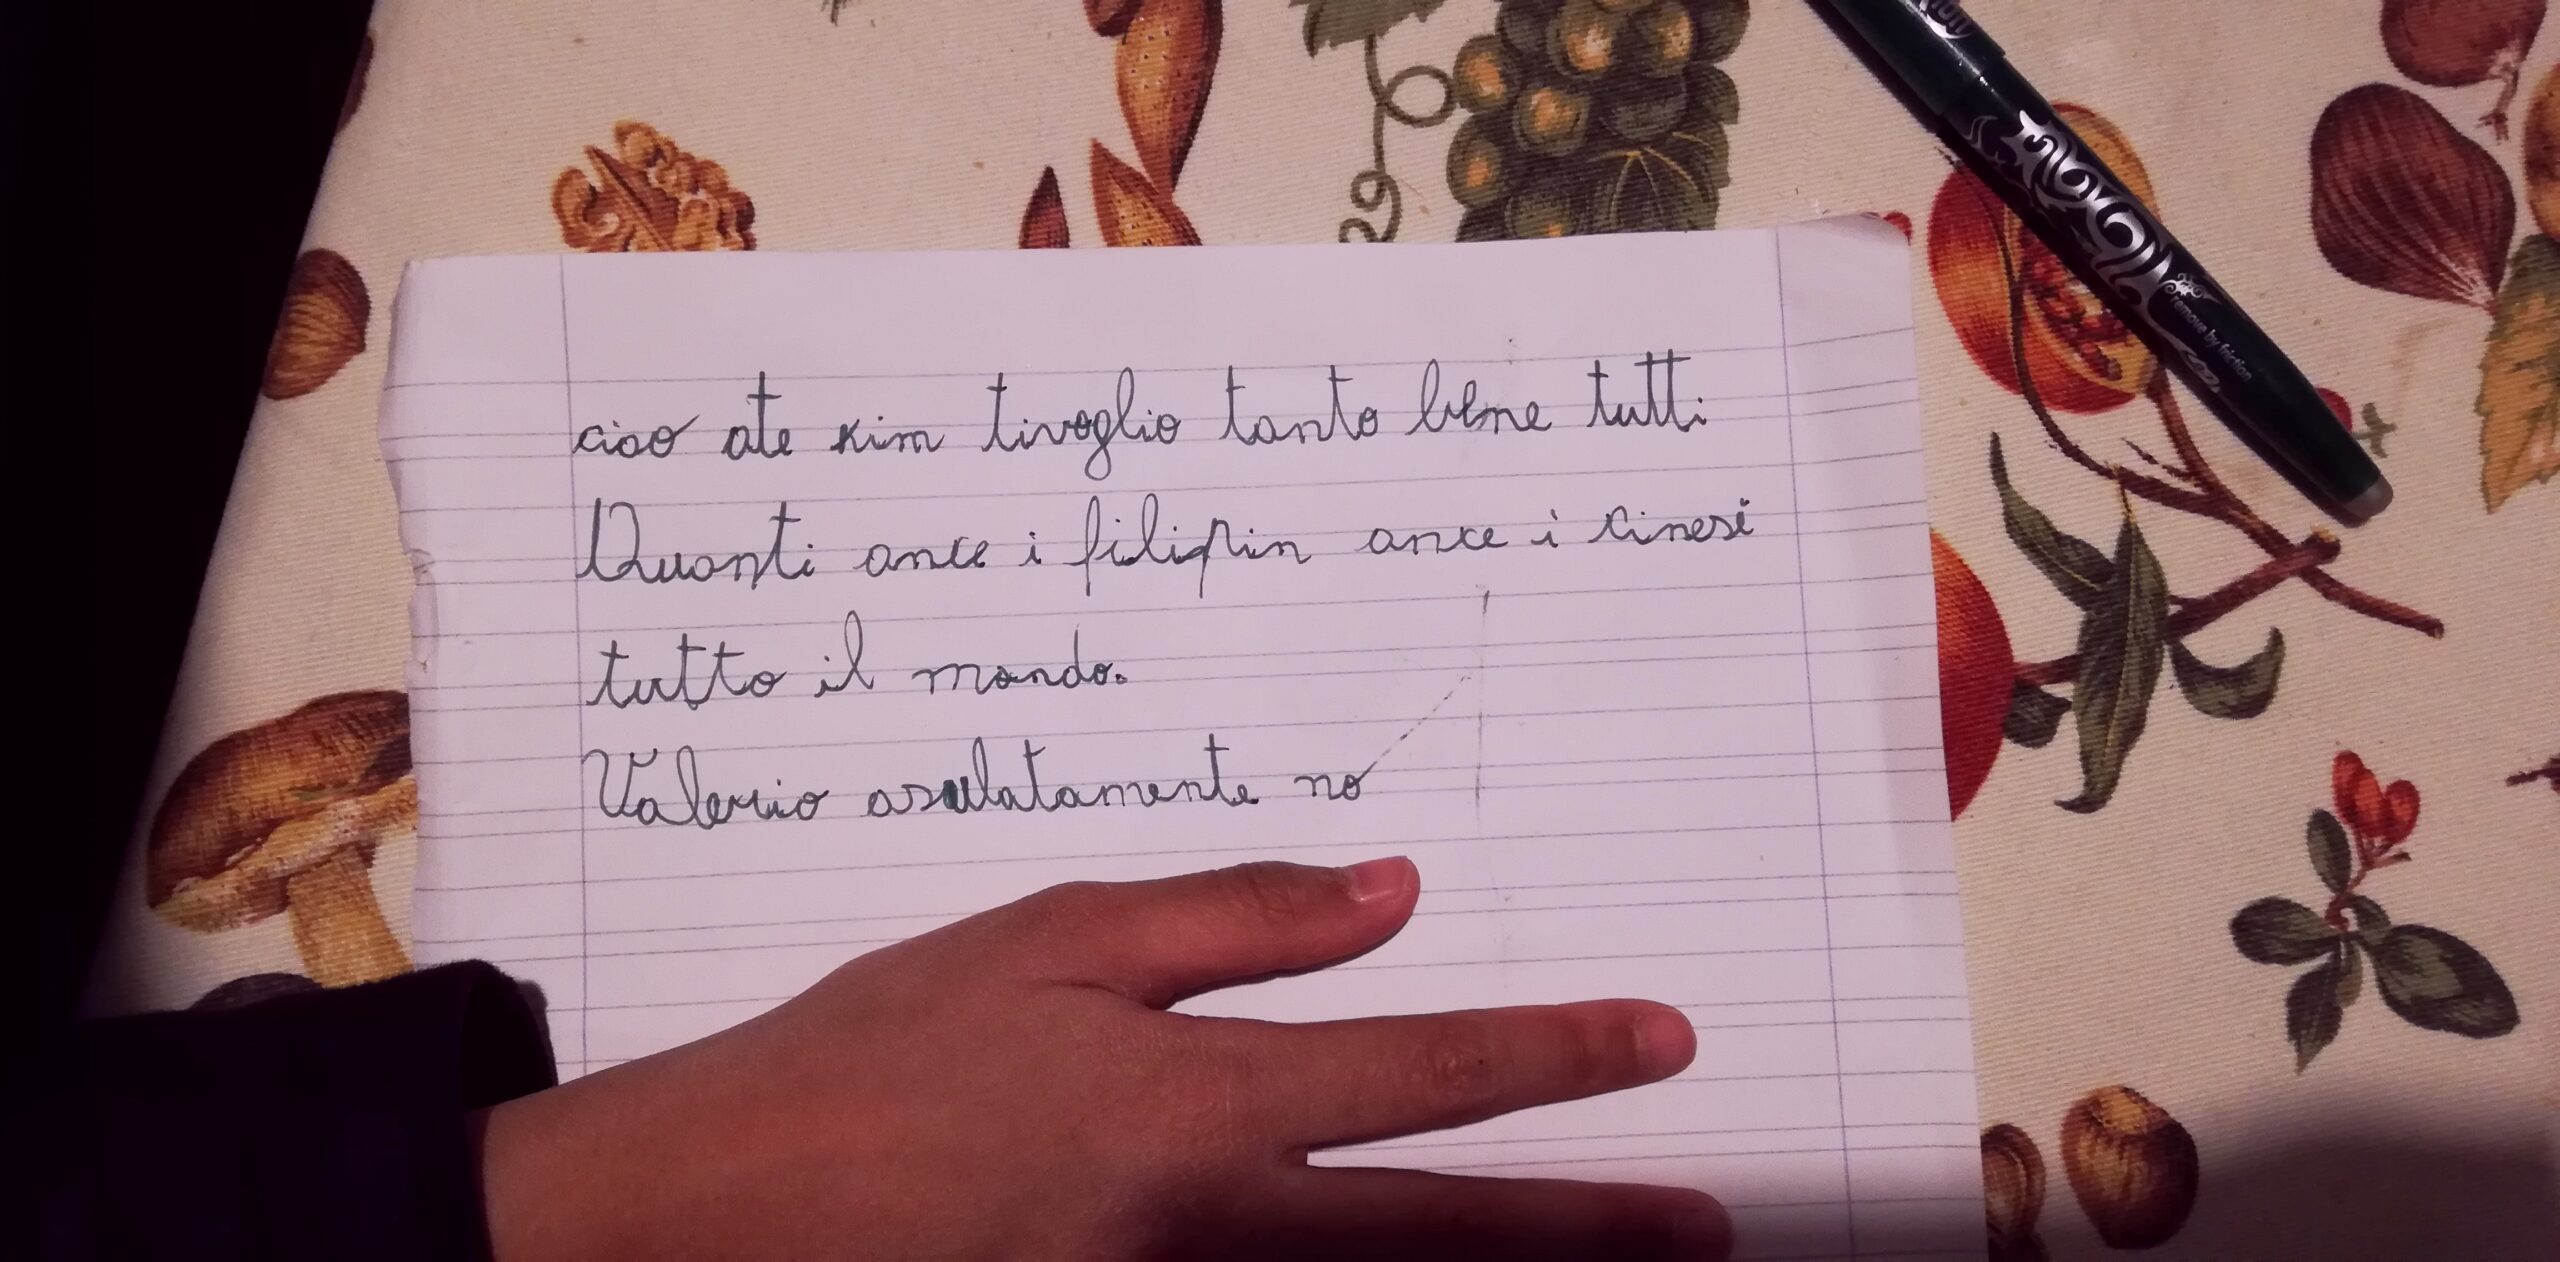 ciao ate kim tivoglio tanto bene tutti
Quanti ance i filipin ance i cinesi
tutto il mondo.
Valerio asulatamente no
remove by friction